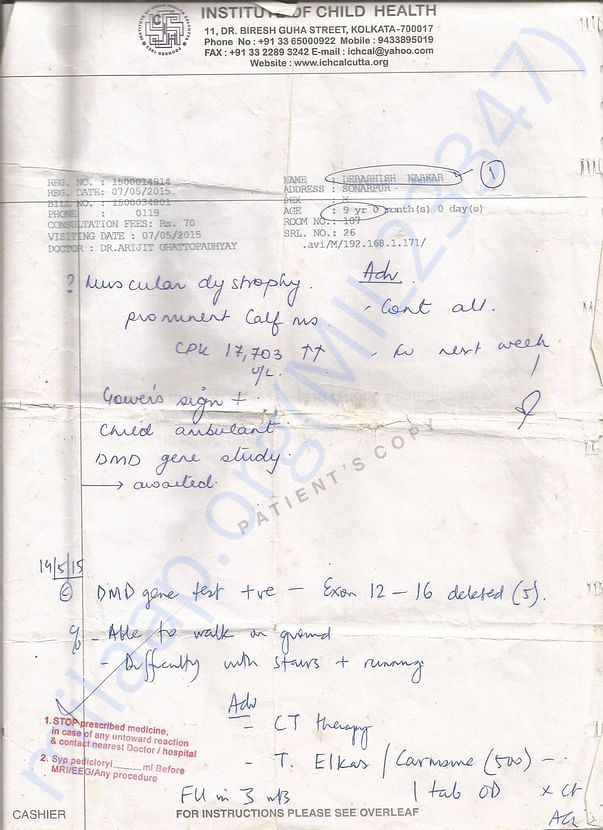 INSTITUTE OF CHILD HEALTH
11, DR. BIRESH GUHA STREET, KOLKATA-700017
Phone No : +91 33 65000922 Mobile : 9433895019
FAX : +91 33 2289 3242 E-mail : ichcal@yahoo.com
Website : www.ichcalcutta.org
REG. NO. : 1500014914
REG. DATE: 07/05/2015
BILL NO. : 1500034801
PHONE : 0119
CONSULTATION FEES: Rs. 70
VISITING DATE : 07/05/2015
DOCTOR : DR.ARIJIT CHATTOPADHYAY
NAME : DEBASHISH NASKAR 1
ADDRESS : SONARPUR
SEX : M
AGE : 9 yr 0 month(s) 0 day(s)
ROOM NO.: 107
SRL. NO.: 26
.avi/M/192.168.1.171/
? Muscular dystrophy.
prominent Calf ms.
CPK 17,703 ↑↑
U/L
Gower's sign +
Child ambulant
DMD gene study
→ awaited.
Adv
- Cont all.
- next week
PATIENT'S COPY
milaap.org(MIL23347)
14/5/15
DMD gene test +ve - Exon 12 - 16 deleted (5).
- Able to walk on ground
- Difficulty with stairs + running
Adv
- CT therapy
- T. / (500) -
1 tab OD x
FU in 3
1. STOP prescribed medicine,
in case of any untoward reaction
& contact nearest Doctor / hospital
2. Syp pedicloryl ___ ml Before
MRI/EEG/Any procedure
CASHIER
FOR INSTRUCTIONS PLEASE SEE OVERLEAF